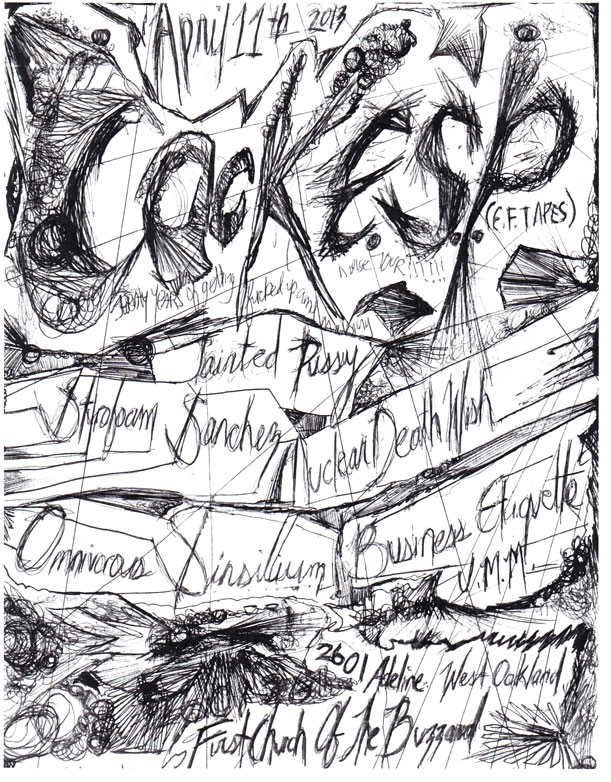 April 11th 2013
CocK E.S.P
(E.F. TAPES)
years of getting fucked up
Tainted Pussy
Styrofoam Sanchez
Nuclear Death Wish
Omnivorous Sinsilium
Business Etiquette
J.M.M.
2601 Adeline West Oakland
First Church Of The Buzzard